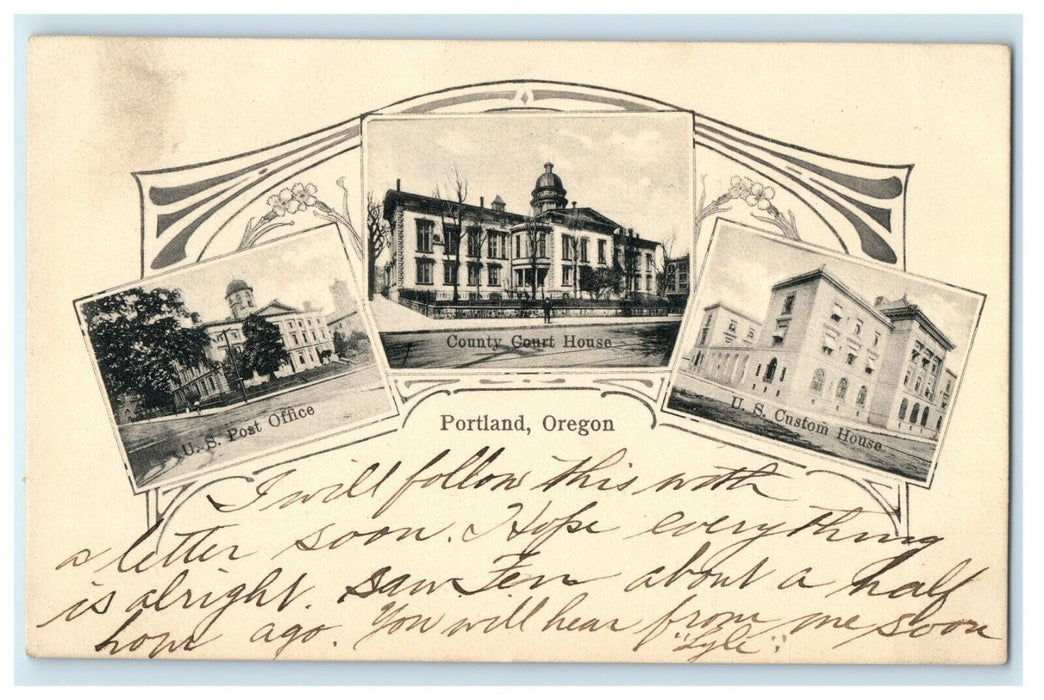 County Court House
U. S. Post Office
U. S. Custom House
Portland, Oregon
I will follow this with
a letter soon. Hope everything
is alright. Saw Fen about a half
hour ago. You will hear from me soon
"Lyle".